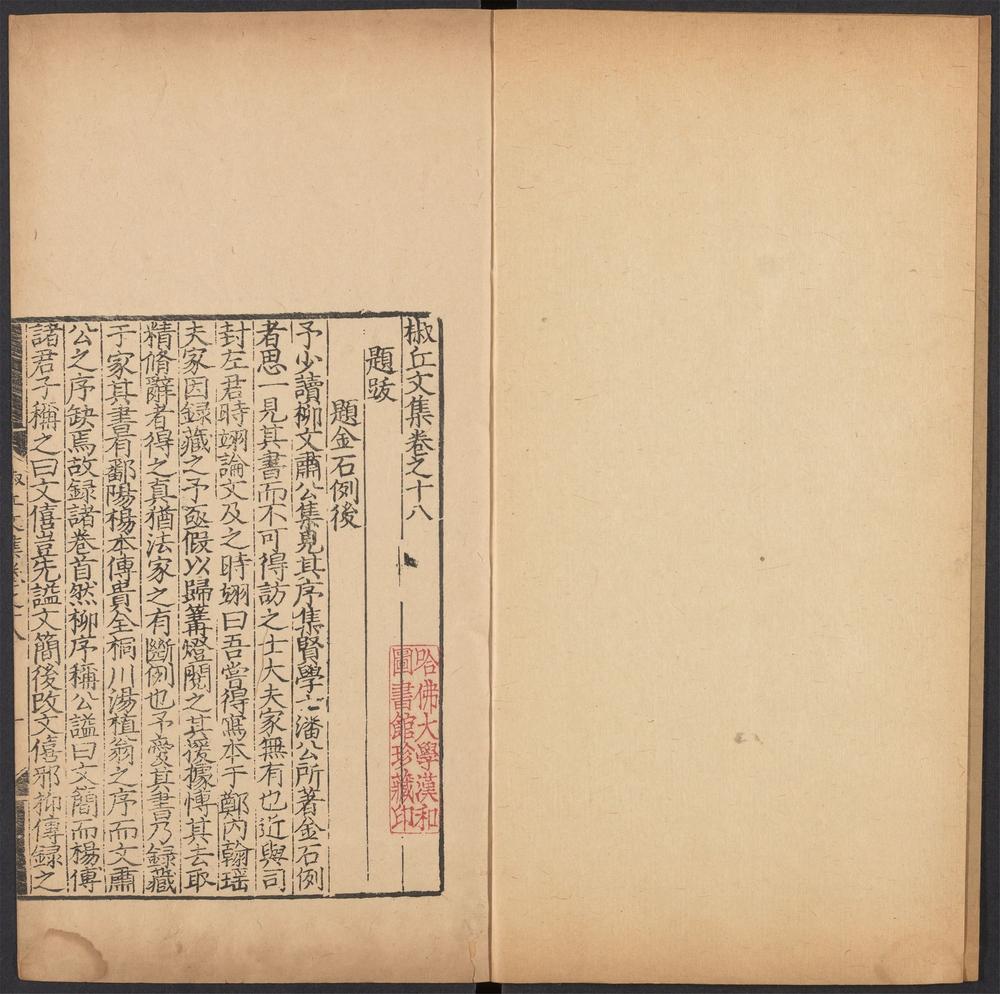 椒丘文集卷之十八
題跋
題金石例後
予少讀柳文肅公集見其序集賢學士潘公所著金石例
者思一見其書而不可得訪之士大夫家無有也近與司
封左君時翊論文及之時翊曰吾嘗得寫本于鄭內翰瑶
夫家因録藏之予亟假以歸篝燈閱之其援據慱其去取
精脩辭者得之真猶法家之有斷例也予愛其書乃録藏
于家其書有鄱陽楊本傅貴全桐川湯植翁之序而文肅
公之序缺焉故録諸巻首然柳序稱公謚曰文簡而楊傅
諸君子稱之曰文僖豈先謚文簡後改文僖邪抑傳録之
椒丘文集卷之十八
哈佛大學漢和
圖書館珍藏印